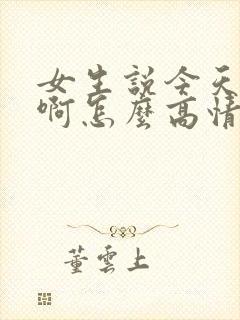 女生説今天
啊怎麼高情
董雲上